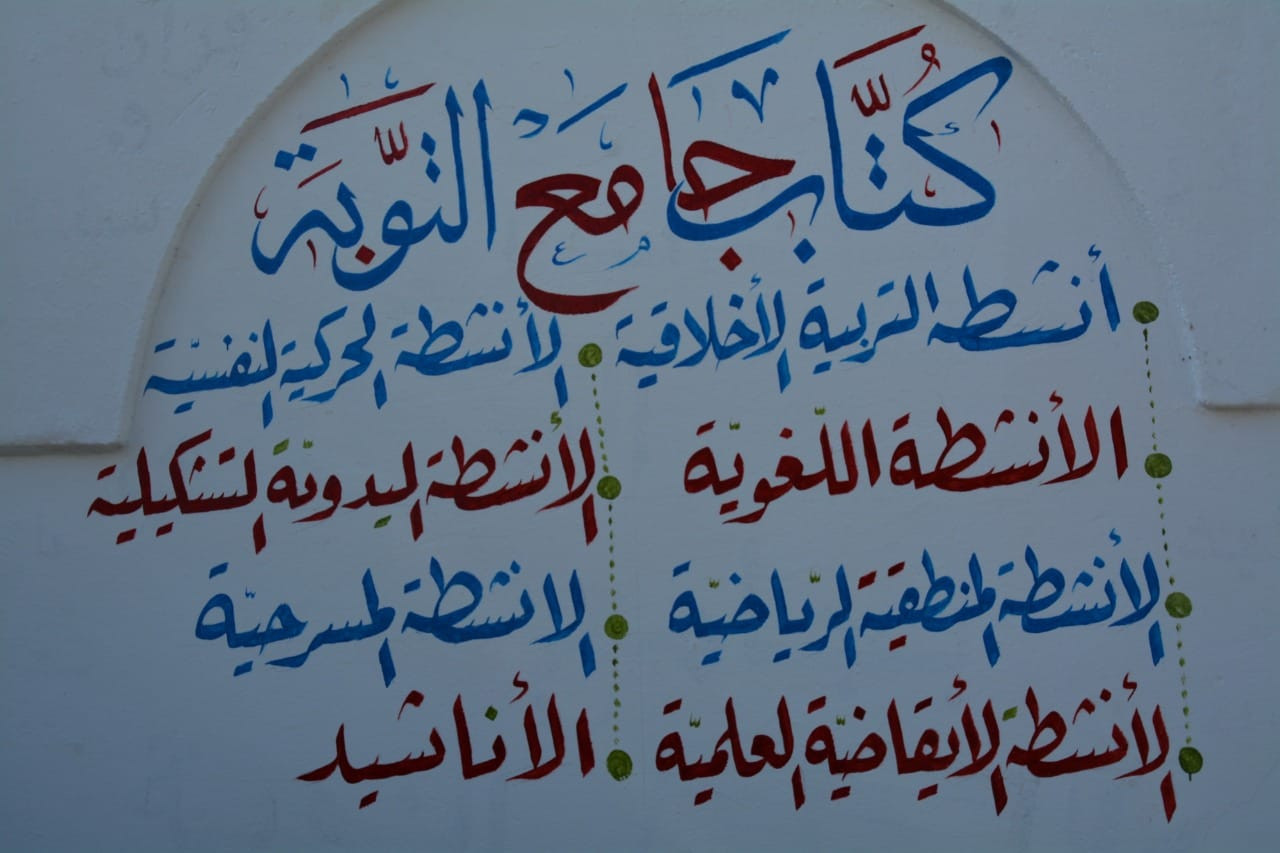 كُتَّاب جَامَع التَّوبَة
أنشطة التربية الأخلاقية
الأنشطة اللّغويّة
الأنشطة المنطقية الرّياضيّة
الأنشطة الأيقاضيّة العلميّة
الأنشطة الحركية النفسيّة
الأنشطة اليدويّة التشكيلية
الانشطة المسرحيّة
الأناشيد